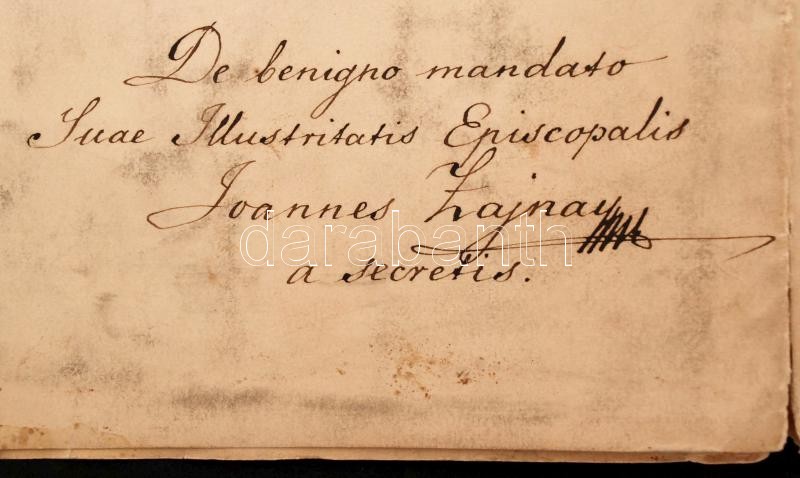 De benigno mandato
Suae Illustritatis Episcopalis
Joannes Zajnay
darabanth
a secretis.